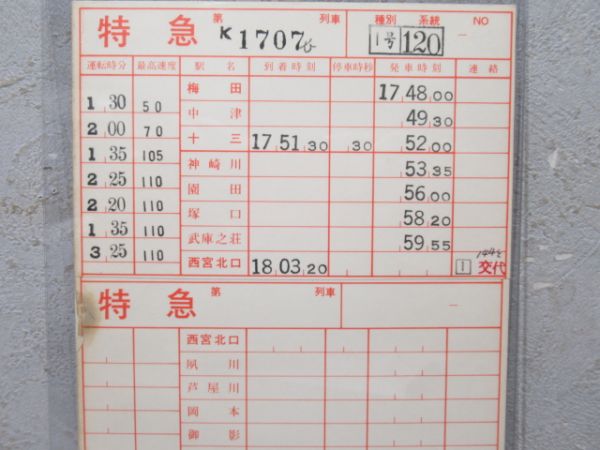 特急 第 K1707 列車 種別 系統 NO
1号 120 −
運転時分 最高速度 駅名 到着時刻 停車時秒 発車時刻 連絡
梅田 17 48 00
1 30 50
中津 49 30
2 00 70
十三 17 51 30 30 52 00
1 35 105
神崎川 53 35
2 25 110
園田 56 00
2 20 110
塚口 58 20
1 35 110
武庫之荘 59 55
3 25 110
西宮北口 18 03 20 1 交代
特急 第 列車 −
西宮北口
夙川
芦屋川
岡本
御影